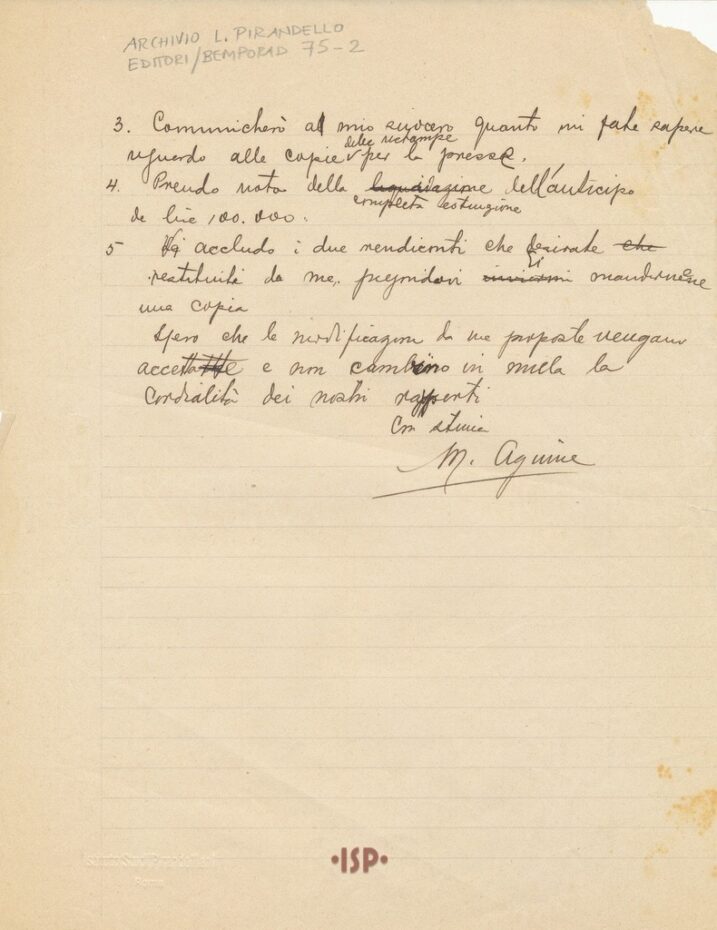 ARCHIVIO L. PIRANDELLO
EDITORI/BEMPORAD 75-2
3. Comunicherò al mio suocero quanto mi fate sapere
riguardo alle copie delle ristampe per la presse.
4. Prendo nota della liquidazione completa estinzione dell'anticipo
de lire 100.000.
5 Vi accludo i due rendiconti che desirate che
restituiti da me, pregandovi di inviarmi mandarmene
una copia
Spero che le modificazioni da me proposte vengano
accettate e non cambino in nulla la
cordialità dei nostri rapporti
Con stima
M. Aguirre
•ISP•